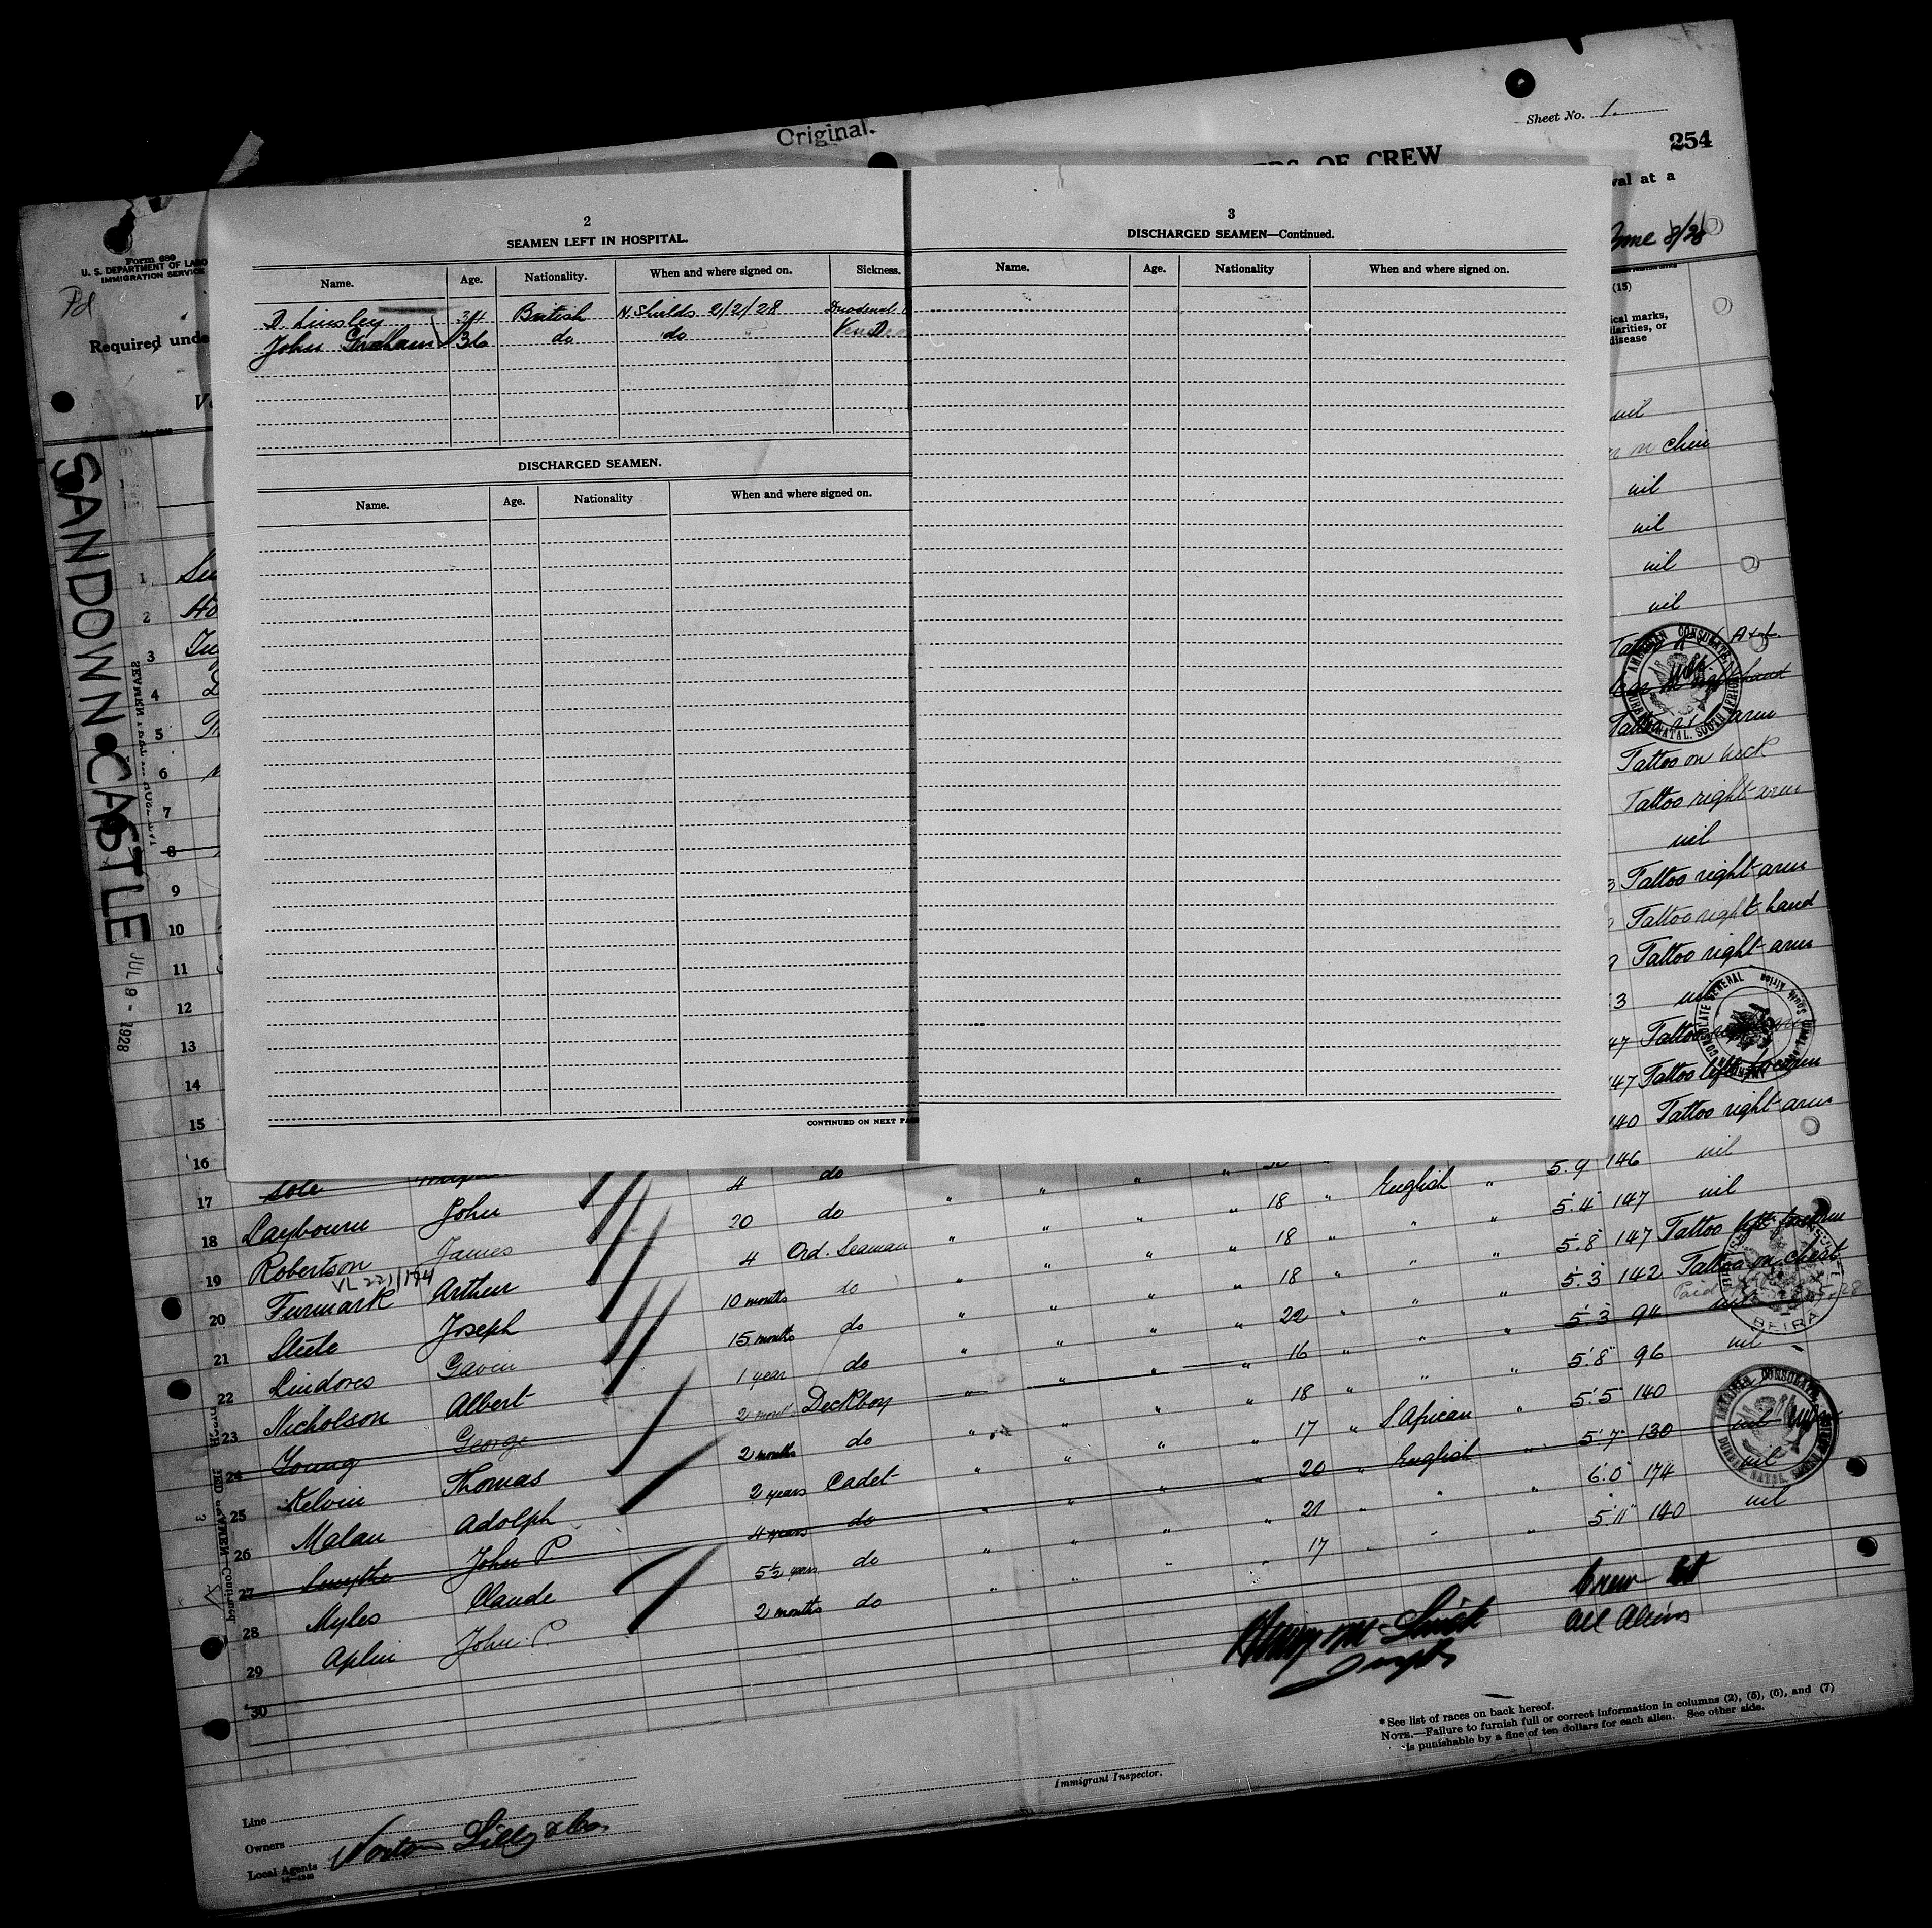 Original.
Sheet No. 1.
254
OF CREW
val at a
Form 680
U. S. DEPARTMENT OF LABO
IMMIGRATION SERVICE
Pd
Required unde
(15)
ical marks,
liarities, or
disease
SANDOWN CASTLE
JUL 9 - 1928
2
SEAMEN LEFT IN HOSPITAL.
Name. Age. Nationality. When and where signed on. Sickness.
D. Linsley 34 British N Shields 2/2/28 Duodenal
John Graham 36 do do
DISCHARGED SEAMEN.
Name. Age. Nationality When and where signed on.
CONTINUED ON NEXT PA
3
DISCHARGED SEAMEN—Continued.
Name. Age. Nationality When and where signed on.
nil
chin
nil
nil
nil
nil
arm
Tattoo on neck
Tattoo right arm
nil
Tattoo right arm
Tattoo right hand
Tattoo right arm
3 nil
47 Tattoo
147 Tattoo left forearm
140 Tattoo right arm
1
2
3
4
5
6
7
8
9
10
11
12
13
14
15
16
17 4 do 5.9 146 nil
18 Laybourn John 20 do " " " " 18 " English " 5.4 147 nil
19 Robertson James 4 Ord. Seaman " " " " 18 " " " 5.8 147 Tattoo left forearm
VL 221/194
20 Furmark Arthur 10 months do " " " " 18 " " " 5.3 142 Tattoo on chest
21 Steele Joseph 15 months do " " " " 22 " " " 5.3 94 nil
22 Lindores Gavin 1 year do " " " " 16 " " " 5.8 96 nil
23 Nicholson Albert 2 mont's Deckboy " " " " 18 " " " 5.5 140
24 Young George 2 months do " " " " 17 " S. African " 5.7 130 nil
25 Kelvin Thomas 2 years Cadet " " " " 20 " English " 6.0 174 nil
26 Malan Adolph 4 years do " " " " 21 " " " 5.11 140 nil
27 Smythe John P. 5½ years do " " " " 17 " " "
28 Myles Claude 2 months do
29 Aplin John P.
30
AMERICAN CONSULATE
DURBAN, NATAL, SOUTH AFRICA
CONSULATE GENERAL
BEIRA
AMERICAN CONSULATE
DURBAN, NATAL, SOUTH AFRICA
Crew
All Aliens
* See list of races on back hereof.
NOTE.—Failure to furnish full or correct information in columns (2), (5), (6), and (7)
is punishable by a fine of ten dollars for each alien. See other side.
Immigrant Inspector.
Line
Owners
Local Agents Norton Lilly & Co